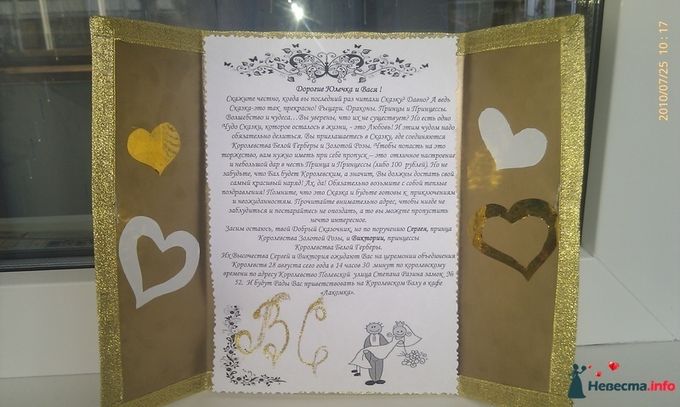 Дорогие Юлечка и Вася !
Скажите честно, когда вы последний раз читали Сказку? Давно? А ведь
Сказка-это так прекрасно! Рыцари. Драконы. Принцы и Принцессы.
Волшебство и чудеса… Вы уверены, что их не существует? Но есть одно
Чудо Сказки, которое осталось в жизни, - это Любовь! И этим чудом надо
обязательно делиться. Вы приглашаетесь в Сказку, где соединяются
Королевства Белой Герберы и Золотой Розы. Чтобы попасть на это
торжество, вам нужно иметь при себе пропуск – это отличное настроение
и небольшой дар в честь Принца и Принцессы (либо 100 рублей). Но не
забудьте, что Бал будет Королевским, а значит, Вы должны достать свой
самый красивый наряд! Ах, да! Обязательно возьмите с собой теплые
поздравления! Помните, что это Сказка и будьте готовы к приключениям
и неожиданностям. Прочитайте внимательно адрес, чтобы нигде не
заблудиться и постарайтесь не опоздать, а то вы можете пропустить
нечто интересное.
Засим остаюсь, твой Добрый Сказочник, но по поручению Сергея, принца
Королевства Золотой Розы, и Виктории, принцессы
Королевства Белой Герберы.
Их Высочества Сергей и Виктория ожидают Вас на церемонии объединения
Королевств 28 августа сего года в 14 часов 30 минут по королевскому
времени по адресу Королевство Полевской улица Степана Разина замок №
52. И будут Рады Вас приветствовать на Королевском Балу в кафе
«Лакомка».
В С
2010/07/25 10:17
Невеста.info